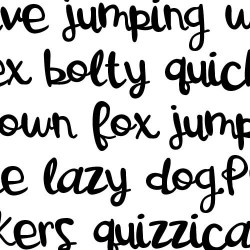 ve jumping w
ex bolty quick
own fox jump
e lazy dog.P
kers quizzica